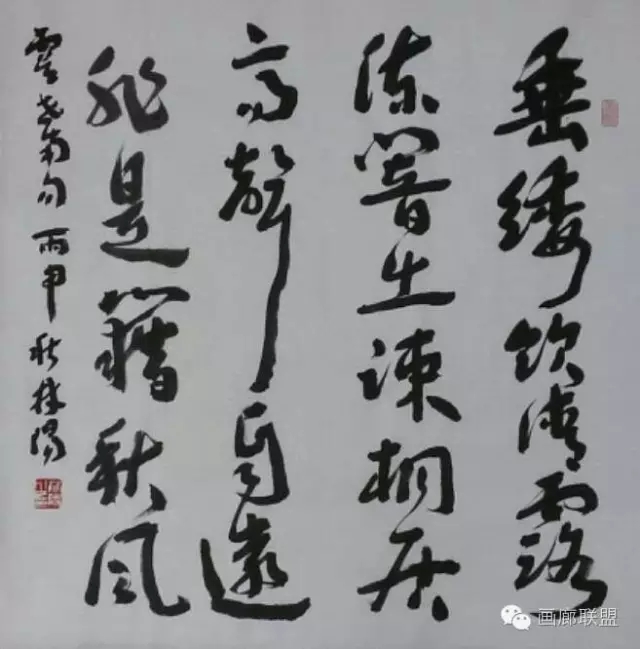 垂緌飲清露
流響出疎桐居
高聲自遠
非是籍秋風
虞世南句 丙申秋林陽
画廊联盟